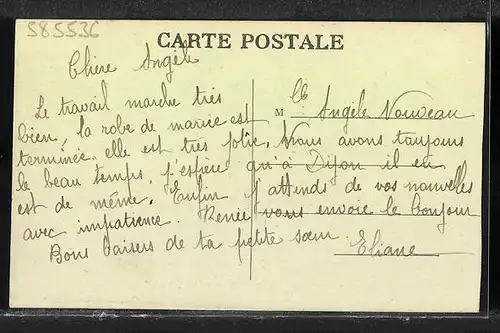 585536
CARTE POSTALE
Chère Angèle
M lle Angèle Nouveau
Le travail marche très
bien, la robe de mariée est
terminée, elle est très jolie, Nous avons toujours
le beau temps, j'espère qu'à Dijon il en
est de même. Enfin j'attends de vos nouvelles
avec impatience. Renée vous envoie le bonjour
Bons baisers de ta petite sœur. Eliane